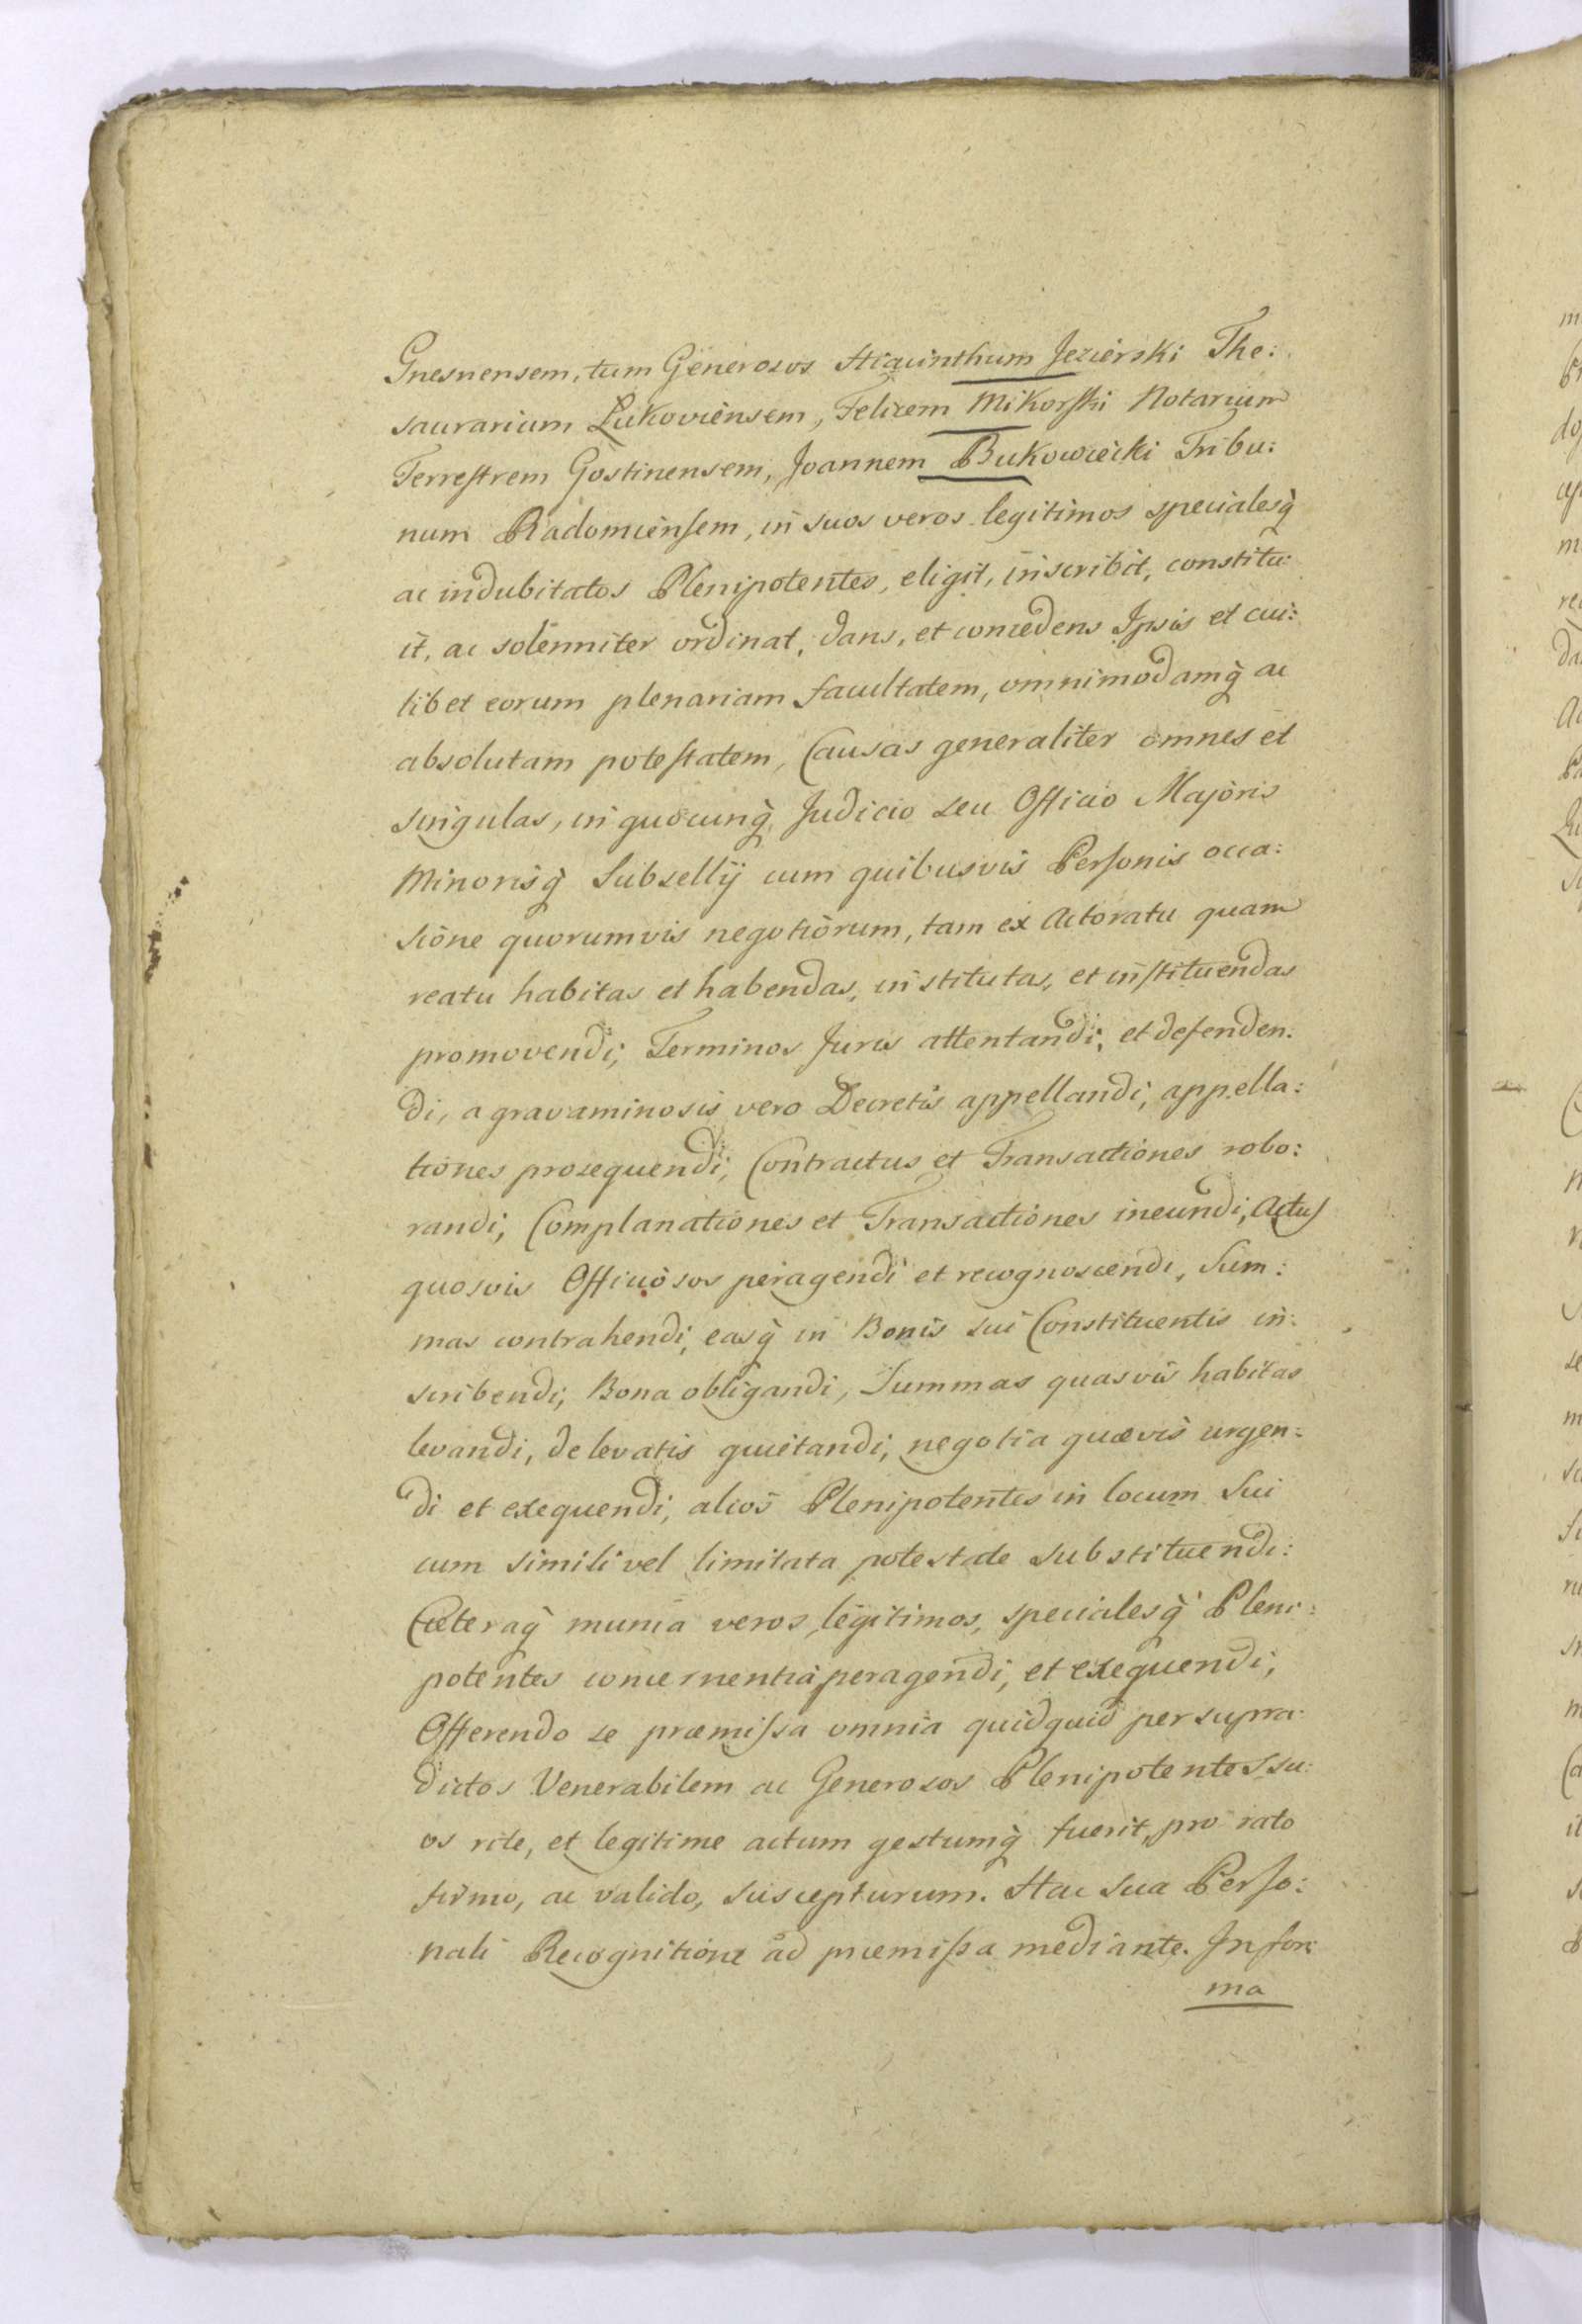 Gnesnensem, tum Generosos Hiacinthum Jezierski The:
saurarium Lukoviensem, Felicem Mikorski Notarium
Terrestrem Gostinensem, Joannem Bukowiecki Tribu:
num Radomiensem, in suos veros legitimos specialesq̀
ac indubitatos Plenipotentes, eligit, inscribit, constitu:
it, ac solenniter ordinat, dans, et concedens Ipsis et cui:
libet eorum plenariam facultatem, omnimodamq̀ ac
absolutam potestatem, Causas generaliter omnes et
singulas, in quocunq̀ Judicio seu Officio Majoris
Minorisq̀ Subsellij cum quibusvis Personis occa:
sione quorumvis negotiorum, tam ex Actoratu quam
reatu habitas et habendas, institutas, et instituendas
promovendi; Terminos Juris attentandi, et defenden:
di, a gravaminosis vero Decretis appellandi, appella:
tiones prosequendi; Contractus et Transactiones robo:
randi; Complanationes et Transactiones ineundi, Actus
quosvis Officiosos peragendi et recognoscendi, Sum:
mas contrahendi, easq̀ in Bonis sui Constituentis in:
scribendi; Bona obligandi, Summas quasvis habitas
levandi, de levatis quietandi, negotia quævis urgen:
di et exequendi, alios Plenipotentes in locum Sui
cum simili vel limitata potestate substituendi:
Cæteraq̀ munia veros, legitimos, specialesq̀ Pleni:
potentes concernentia peragendi, et exequendi,
Offerendo se præmissa omnia quidquid per supra:
dictos Venerabilem ac Generosos Plenipotentes su:
os rite, et legitime actum gestumq̀ fuerit, pro rato
firmo, ac valido, suscepturum. Hac sua Perso:
nali Recognitione ad præmissa mediante. In for:
ma